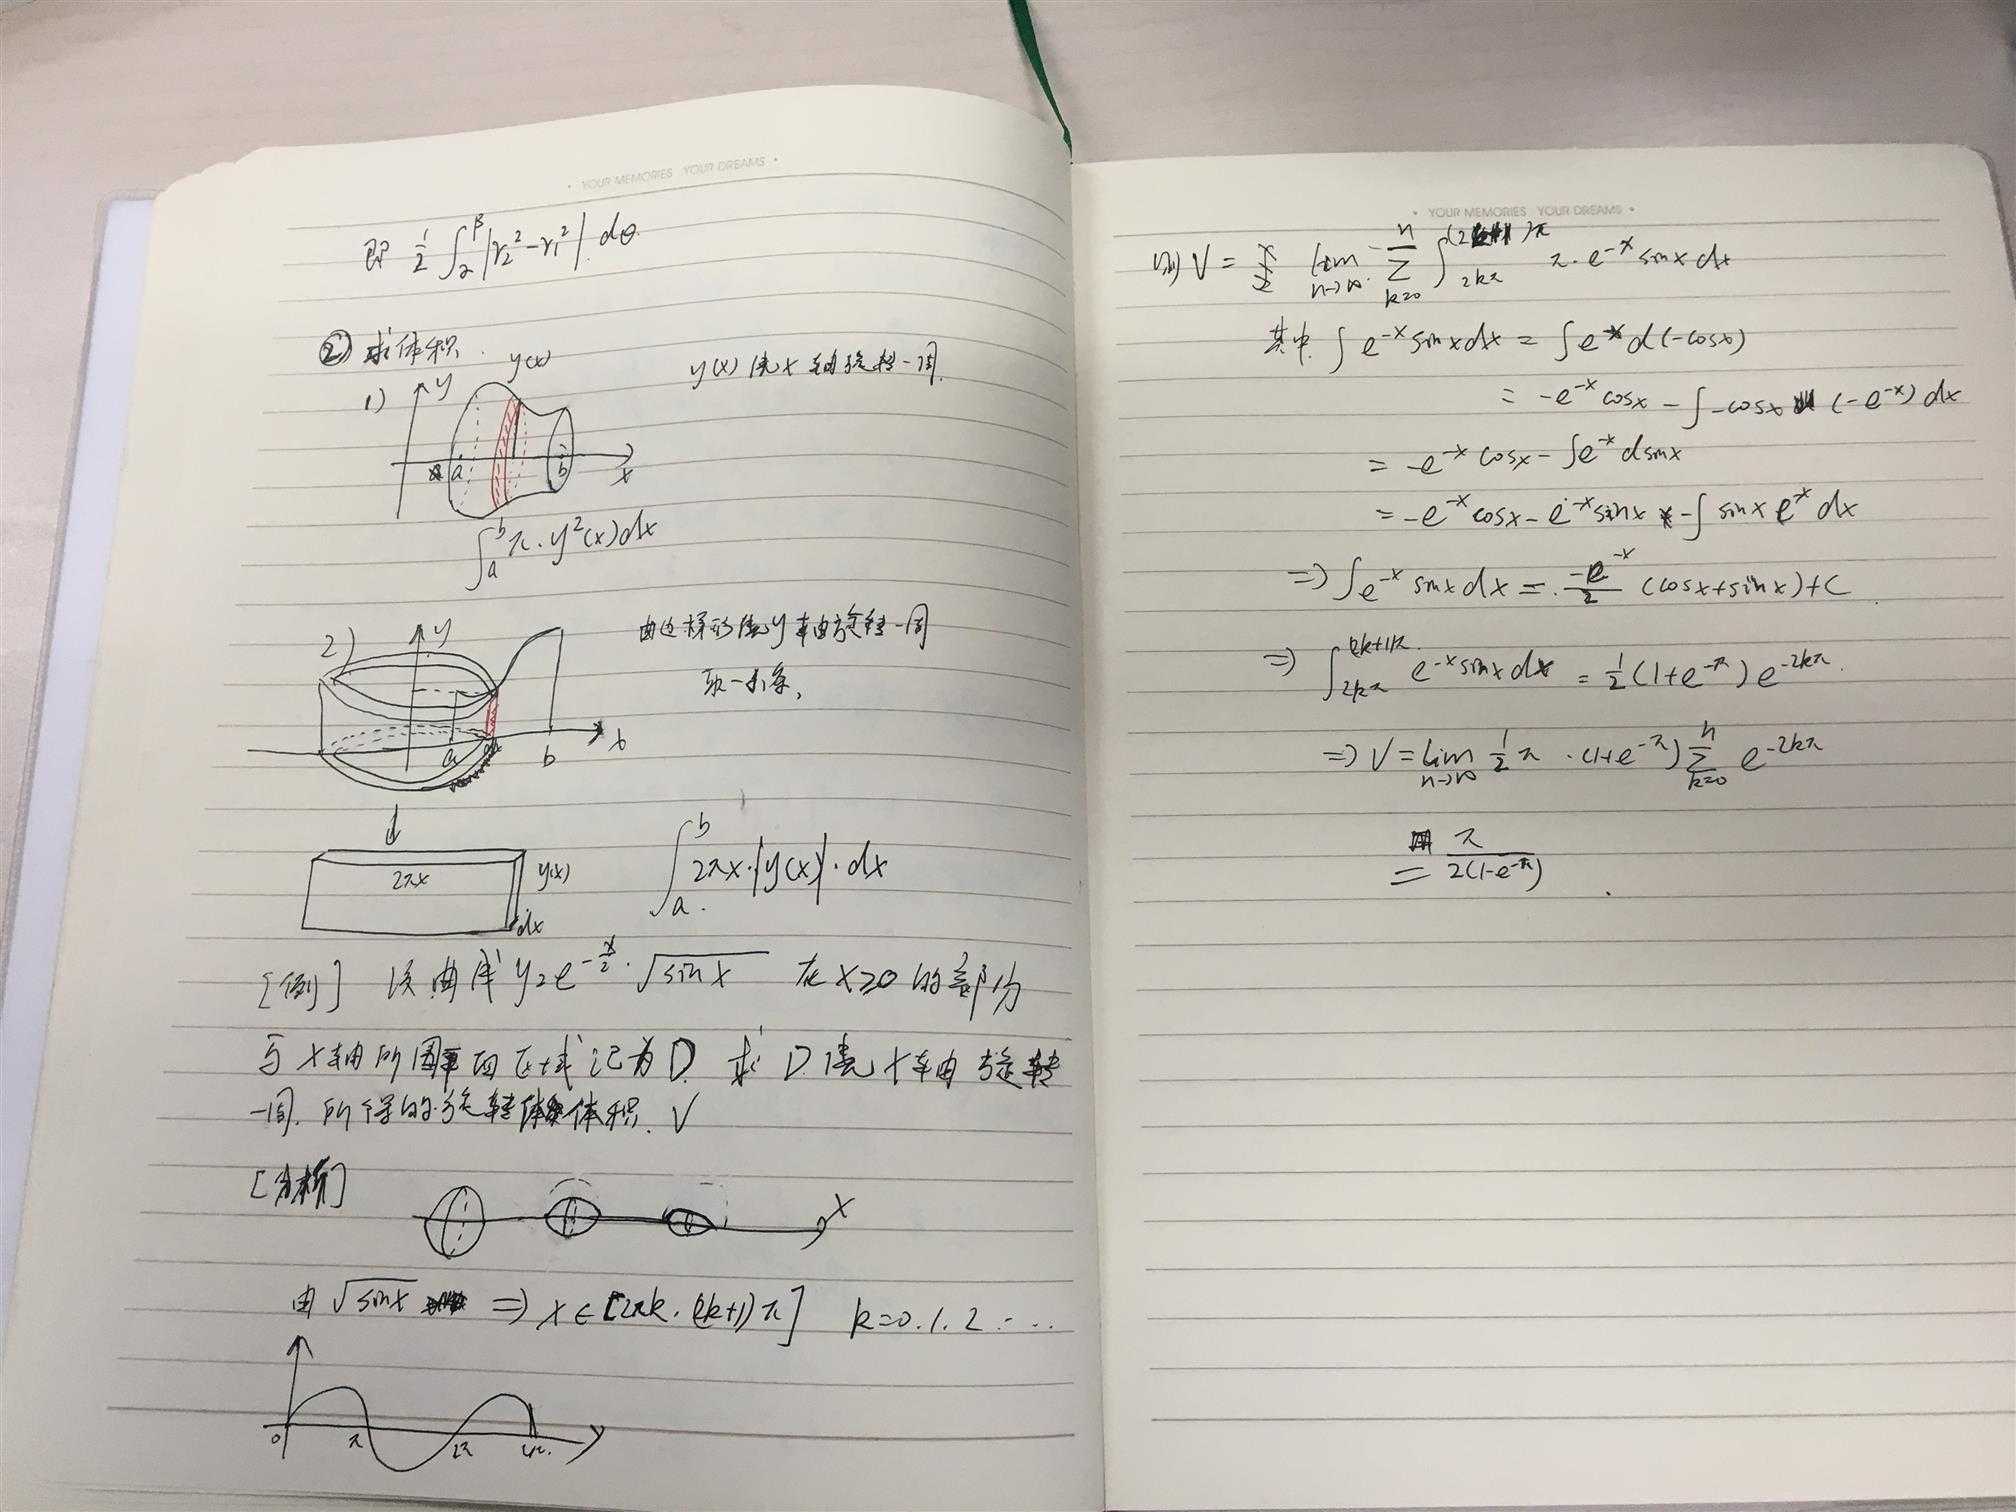 YOUR MEMORIES YOUR DREAMS
即 1/2 ∫_α^β |r₂²-r₁²| dθ
② 求体积.
1) y y(x) y(x) 绕 x 轴旋转一周.
a b x
∫_a^b π·y²(x)dx
2) y 曲边梯形绕 y 轴旋转一周
取一小条,
a b x
2πx y(x) dx
∫_a^b 2πx·|y(x)|·dx
[例] 设曲线 y=e^{-x/2}·√sinx 在 x≥0 的部分
与 x 轴所围平面区域记为 D. 求 D 绕 x 轴旋转
一周. 所得的旋转体体积. V
[分析]
x
由 √sinx ⇒ x∈[2πk, (2k+1)π] k=0.1.2...
0 π 2π
YOUR MEMORIES YOUR DREAMS
则 V = lim_{n→∞} Σ_{k=0}^n ∫_{2kπ}^{(2k+1)π} π·e^{-x} sinx dx
其中 ∫e^{-x} sinx dx = ∫e^{-x} d(-cosx)
= -e^{-x} cosx - ∫-cosx (-e^{-x}) dx
= -e^{-x} cosx - ∫e^{-x} dsinx
= -e^{-x} cosx - e^{-x} sinx - ∫ sinx e^{-x} dx
⇒ ∫e^{-x} sinx dx = -e^{-x}/2 (cosx+sinx)+C
⇒ ∫_{2kπ}^{(2k+1)π} e^{-x} sinx dx = 1/2 (1+e^{-π}) e^{-2kπ}.
⇒ V = lim_{n→∞} 1/2 π·(1+e^{-π}) Σ_{k=0}^n e^{-2kπ}
= π/(2(1-e^{-π}))